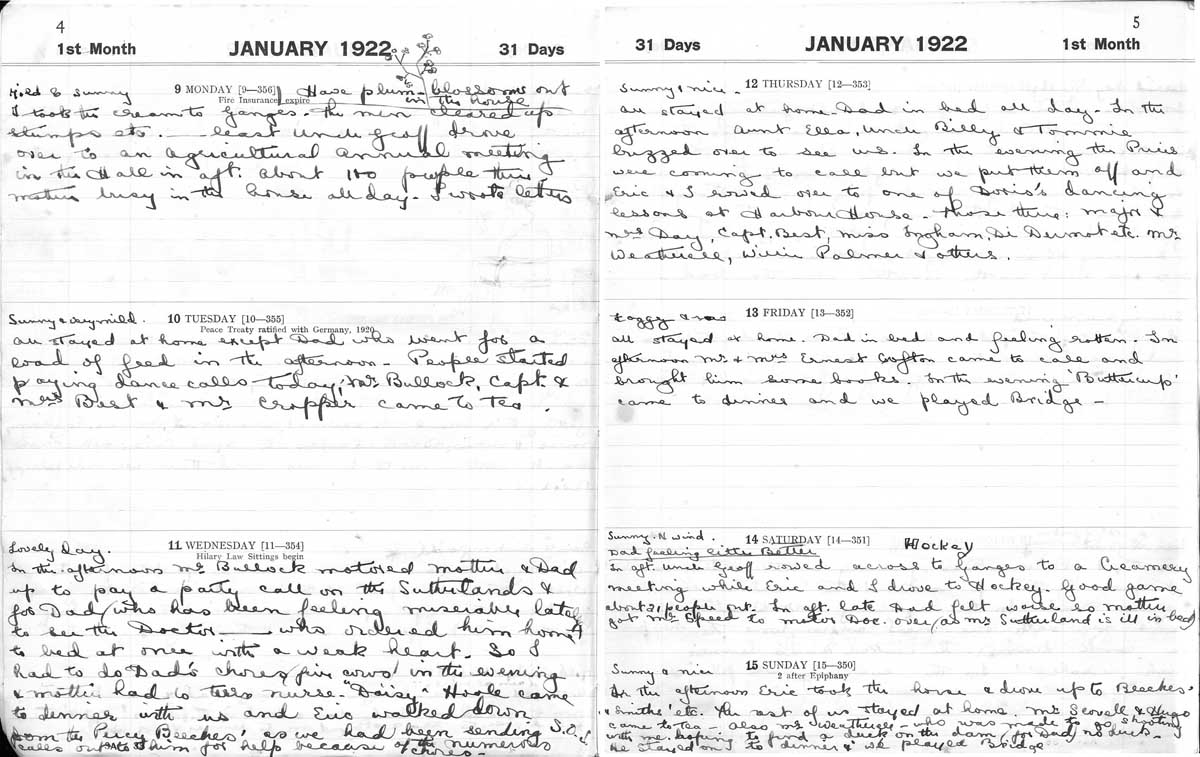 4
1st Month JANUARY 1922 31 Days
Mild & Sunny 9 MONDAY [9—356] Have plum blossoms out
Fire Insurance expire in the house
I took the cream to Ganges. The men cleared up
stumps etc. — least Uncle Geoff drove
over to an agricultural annual meeting
in the Hall in aft. About 100 people there
mother busy in the house all day. I wrote letters
Sunny & very mild. 10 TUESDAY [10—355]
Peace Treaty ratified with Germany, 1920
All stayed at home except Dad who went for a
load of feed in the afternoon. People started
paying dance calls today, Mr Bullock, Capt. &
Mrs Best & Mr Cropper came to tea.
Lovely day. 11 WEDNESDAY [11—354]
Hilary Law Sittings begin
In the afternoon Mr Bullock motored mother & Dad
up to pay a party call on the Sutherlands &
for Dad (who has been feeling miserable lately)
to see the Doctor — who ordered him home &
to bed at once with a weak heart. So I
had to do Dad's chores, five cows! in the evening
& mother had to turn nurse. "Daisy" Hoole came
to dinner with us and Eric walked down
from the Percy Beeches' as we had been sending S.O.S.
calls out to him for help because of the numerous
chores —
5
31 Days JANUARY 1922 1st Month
Sunny & nice. 12 THURSDAY [12—353]
All stayed at home. Dad in bed all day. In the
afternoon Aunt Ella, Uncle Billy & Tommie
buzzed over to see us. In the evening the Prices
were coming to call but we put them off and
Eric & I rowed over to one of Doris's dancing
lessons at Harbour House. Those there: Major &
Mrs Day, Capt. Best, Miss Ingham, Di Dermot etc. Mr
Weatherell, Willie Palmer & others.
Foggy & 13 FRIDAY [13—352]
All stayed at home. Dad in bed and feeling rotten. In
afternoon Mr & Mrs Ernest Crofton came to call and
brought him some books. In the evening 'Buttercup'
came to dinner and we played Bridge —
Sunny. N wind. 14 SATURDAY [14—351] Hockey
Dad feeling little Better
In aft. Uncle Geoff rowed across to Ganges to a Creamery
meeting while Eric and I drove to Hockey. Good game
about 21 people out. In aft. late Dad felt worse so mother
got Mr Speed to motor Doc. over, as Mrs Sutherland is ill in bed
Sunny & nice 15 SUNDAY [15—350]
2 after Epiphany
In the afternoon Eric took the horse & drove up to Beeches'
& Smiths' etc. The rest of us stayed at home. Mr Scovell & Hugo
came to tea — also Mr — who was made to go shooting
with me hoping to find a duck on the dam for Dad, no duck —
He stayed on to dinner & we played Bridge